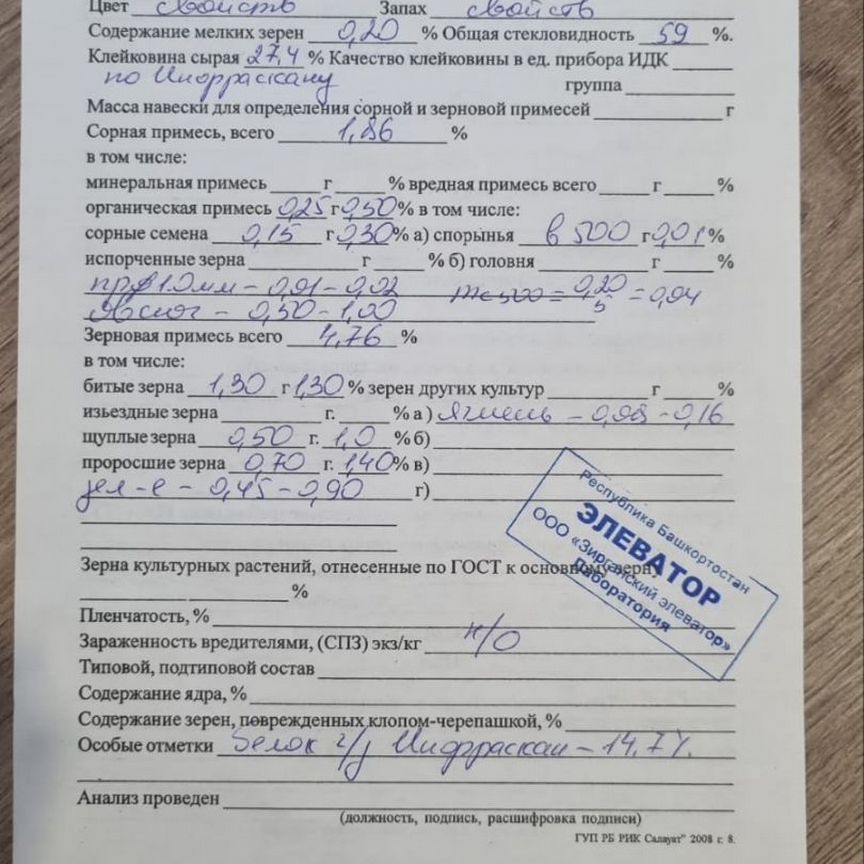 Цвет свойств Запах свойств
Содержание мелких зерен 0,20 % Общая стекловидность 59 %.
Клейковина сырая 27,4 % Качество клейковины в ед. прибора ИДК
по Инфраскану группа
Масса навески для определения сорной и зерновой примесей г
Сорная примесь, всего 1,86 %
в том числе:
минеральная примесь г % вредная примесь всего г %
органическая примесь 0,25 г 0,50% в том числе:
сорные семена 0,15 г 0,30% а) спорынья в 500 г 0,01%
испорченные зерна г % б) головня г %
пр ф 1,0мм - 0,01 - 0,02 = 0,20/5 = 0,04
Овсюг - 0,50 - 1,00
Зерновая примесь всего 4,76 %
в том числе:
битые зерна 1,30 г 1,30 % зерен других культур г %
изьездные зерна г. % а) Ячмень - 0,08 - 0,16
щуплые зерна 0,50 г. 1,0 % б)
проросшие зерна 0,70 г. 1,40% в)
зел-е - 0,45 - 0,90 г)
Зерна культурных растений, отнесенные по ГОСТ к основному зерну
%
Пленчатость, %
Зараженность вредителями, (СПЗ) экз/кг н/о
Типовой, подтиповой состав
Содержание ядра, %
Содержание зерен, поврежденных клопом-черепашкой, %
Особые отметки Белок Инфраскан - 14.7%
Анализ проведен
(должность, подпись, расшифровка подписи)
ГУП РБ РИК Салауат" 2008 г. 8.
Республика Башкортостан
ЭЛЕВАТОР
ООО «Зирганский элеватор»
Лаборатория